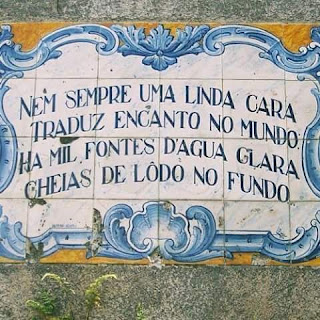 NEM SEMPRE UMA LINDA CARA
TRADUZ ENCANTO NO MUNDO
HA MIL FONTES D'AGUA CLARA
CHEIAS DE LÔDO NO FUNDO